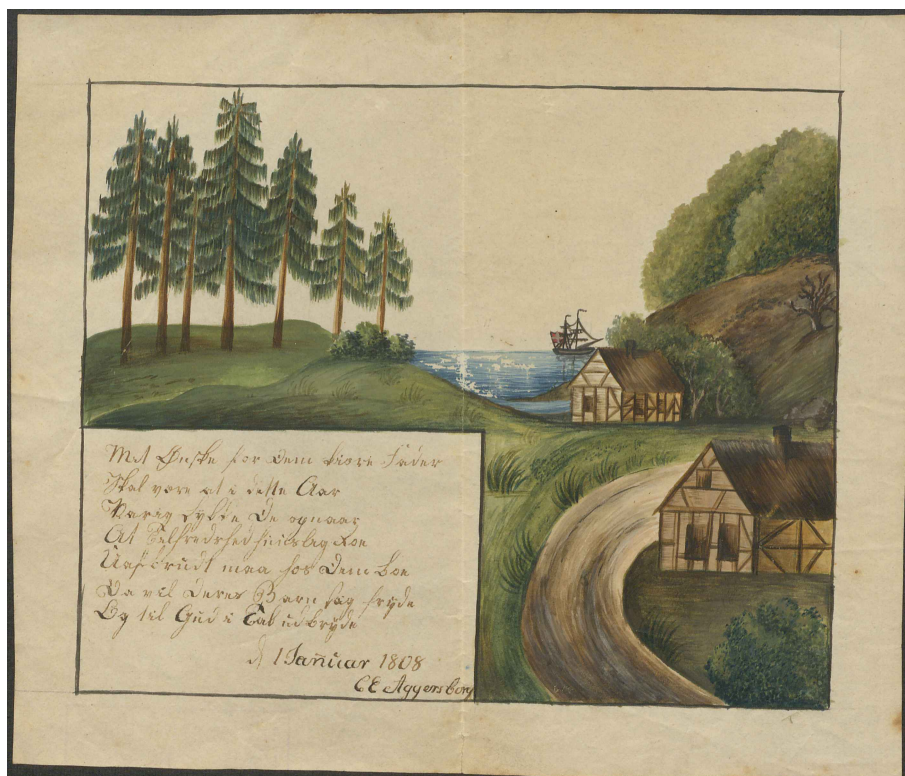 Mit Ønske for Dem kiære Fader
Skal være at i dette Aar
Varig Lykke De opnaar
At Tilfredshed huuslig Roe
Uafbrudt maa hos Dem boe
Da vil Deres Barn sig fryde
Og til Gud i Tak udbryde
d 1 Januar 1808
CE Aggersborg